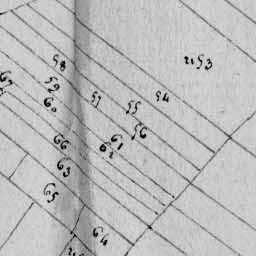 2153
58
54
57
55
59
60
56
61
62
66
63
65
64